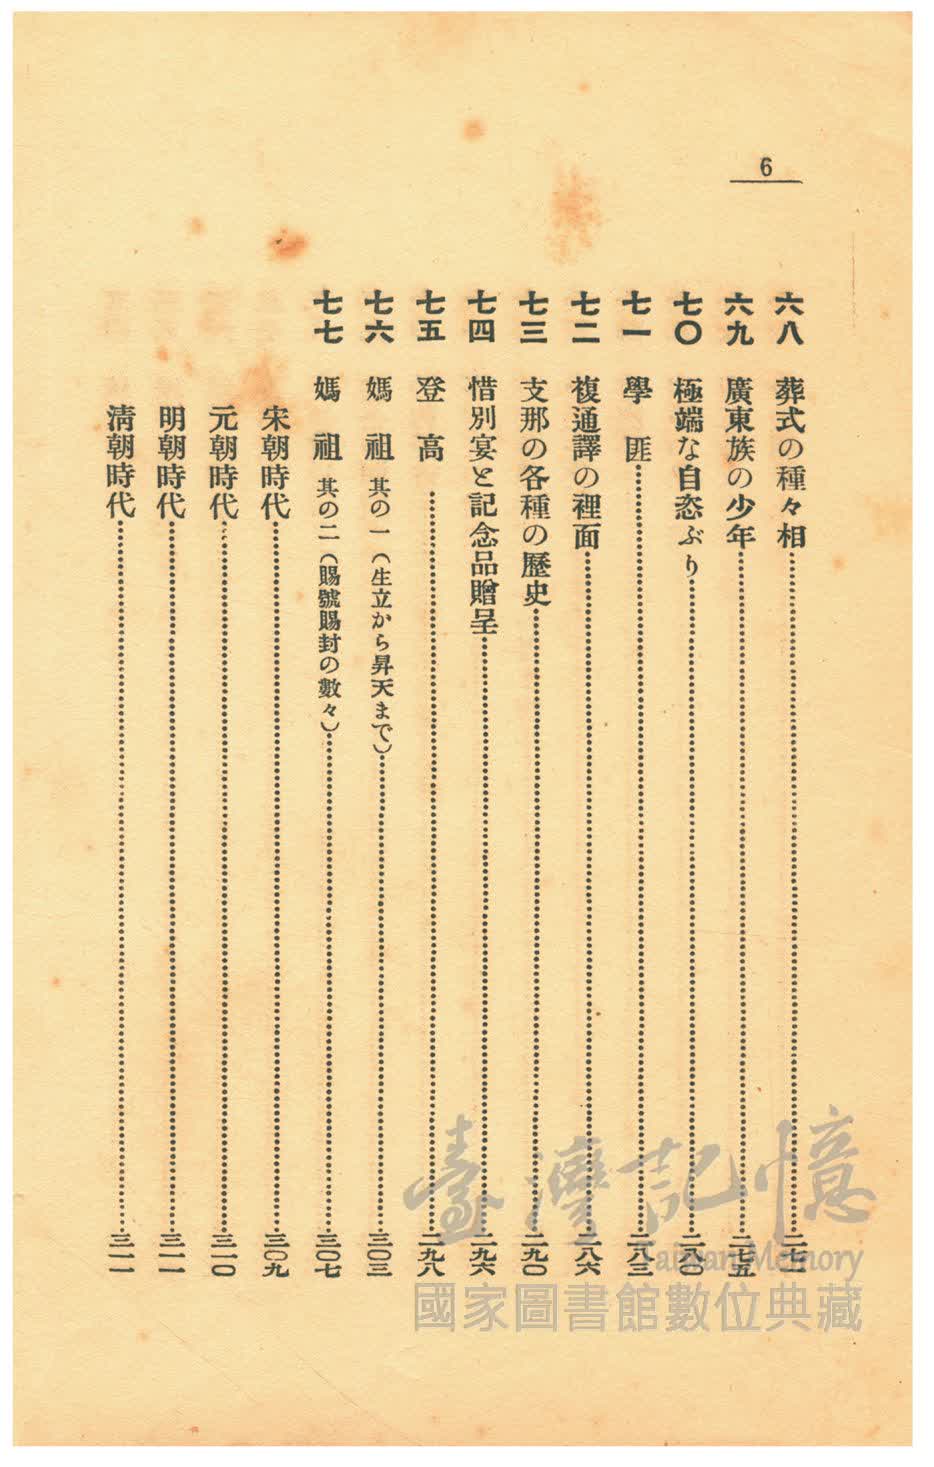 6
六八 葬式の種々相……二七一
六九 廣東族の少年……二七五
七〇 極端な自恣ぶり……二八〇
七一 學匪……二八三
七二 複通譯の裡面……二八六
七三 支那の各種の歷史……二九〇
七四 惜別宴と記念品贈呈……二九六
七五 登高……二九八
七六 媽祖 其の一(生立から昇天まで)……三〇三
七七 媽祖 其の二(賜號賜封の數々)……三〇七
宋朝時代……三〇九
元朝時代……三一〇
明朝時代……三一一
淸朝時代……三一一
臺灣記憶
Taiwan Memory
國家圖書館數位典藏